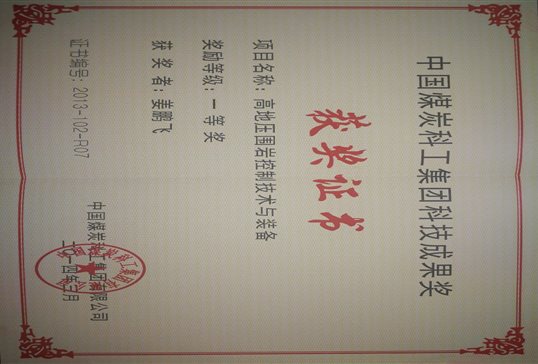 中国煤炭科工集团科技成果奖
获奖证书
项目名称：高地压围岩控制技术与装备
奖励等级：一等奖
获奖者：姜鹏飞
证书编号：2013-102-R07
中国煤炭科工集团有限公司
二〇一四年三月